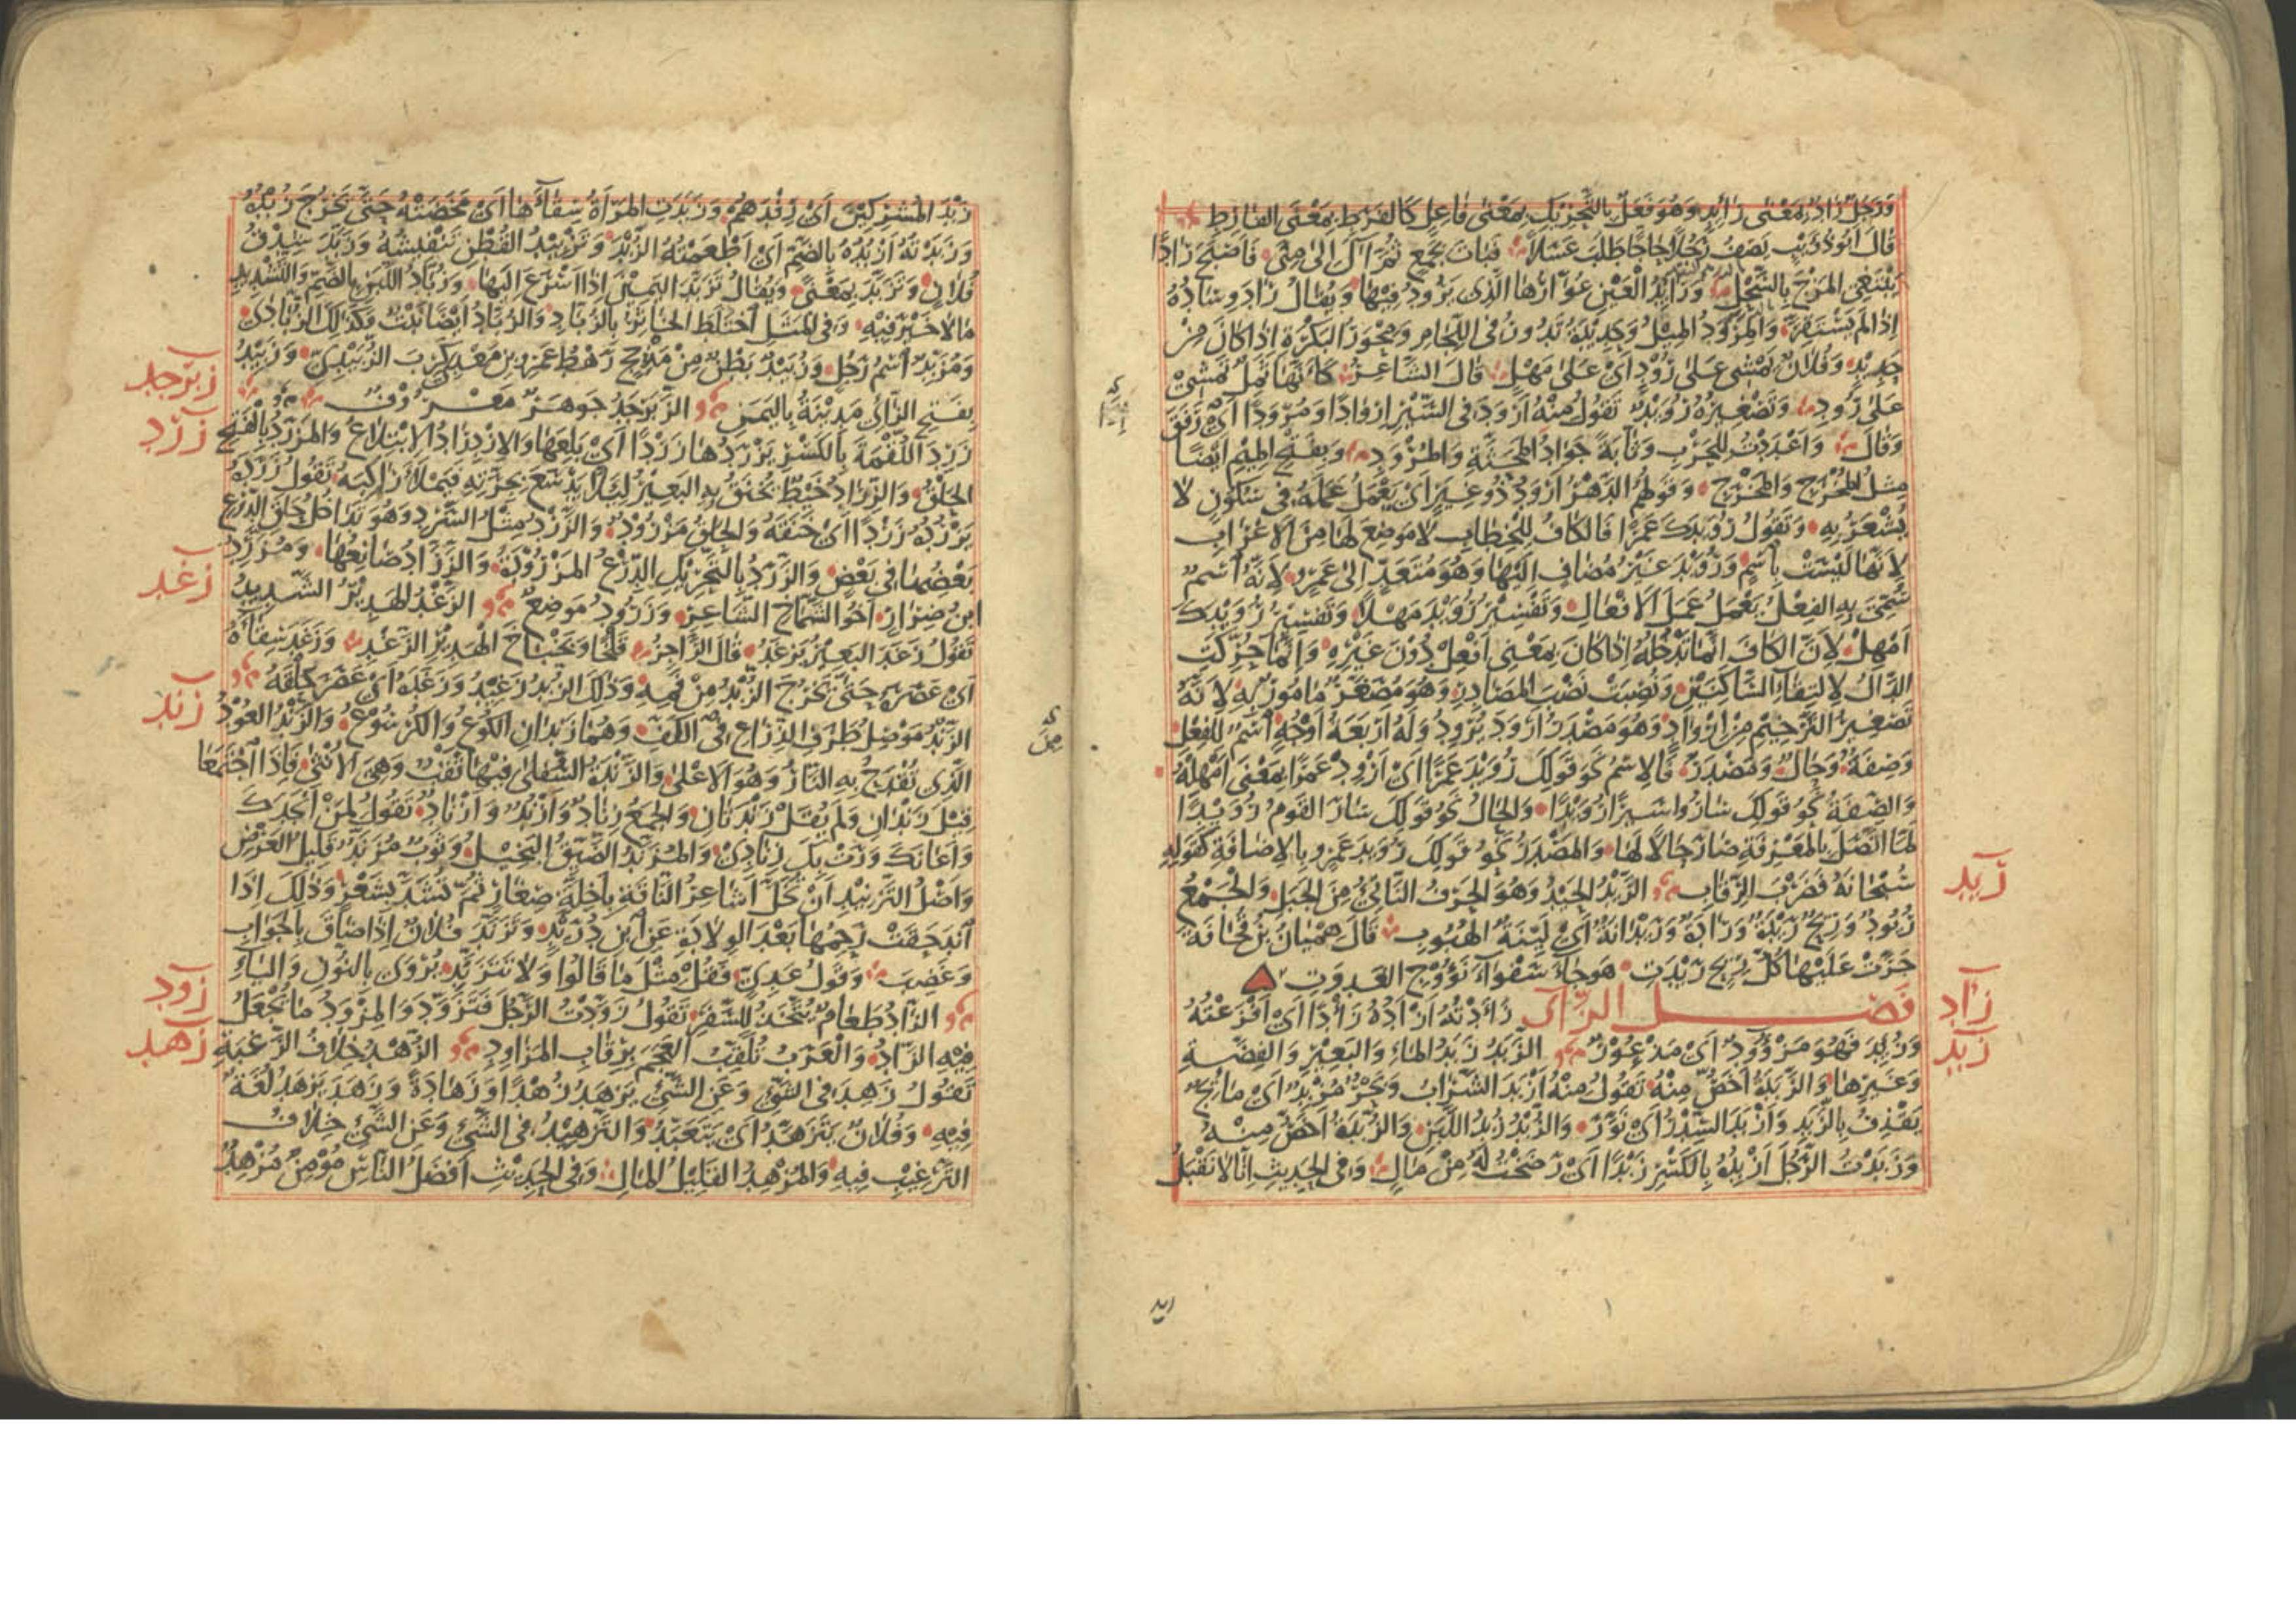 وَرَجُلٌ رَادٌ بِمَعْنَى رَائِدٍ وَهُوَ فَعَلٌ بِالتَّحْرِيكِ بِمَعْنَى فَاعِلٍ كَالْفَرَطِ بِمَعْنَى الْفَارِطِ
قَالَ أَبُو ذُؤَيْبٍ يَصِفُ رَجُلًا حَاجًّا طَلَبَ عَسَلًا فَبَاتَ بِجَمْعٍ ثُمَّ آلَ إِلَى مِنًى فَأَصْبَحَ رَادًا
يَبْتَغِي الْمَزْجَ بِالسَّحْلِ وَرَائِدُ الْعَيْنِ عُوَّارُهَا الَّذِي يَرُودُ فِيهَا وَيُقَالُ رَادَ وِسَادُهُ
إِذَا لَمْ يَسْتَقِرَّ وَالْمِرْوَدُ الْمِيلُ وَحَدِيدَةٌ تَدُورُ فِي اللِّجَامِ وَمِحْوَرُ الْبَكَرَةِ إِذَا كَانَ مِنْ
حَدِيدٍ وَفُلَانٌ يَمْشِي عَلَى رُوْدٍ أَيْ عَلَى مَهْلٍ قَالَ الشَّاعِرُ كَأَنَّهَا ثَمِلٌ تَمْشِي
عَلَى رُودِ وَتَصْغِيرُهُ رُوَيْدٌ تَقُولُ مِنْهُ أَرْوَدَ فِي السَّيْرِ إِرْوَادًا وَمُرْوَدًا أَيْ رَفَقَ
وَقَالَ وَأَعْدَدْتُ لِلْحَرْبِ وَثَّابَةً جَوَادَ الْمَحَثَّةِ وَالْمُرْوَدِ وَبِفَتْحِ الْمِيمِ أَيْضًا
مِثْلُ الْمُخْرَجِ وَالْمَخْرَجِ وَقَوْلُهُمْ الدَّهْرُ أَرْوَدُ ذُو غِيَرٍ أَيْ يَعْمَلُ عَمَلَهُ فِي سُكُونٍ لَا
يُشْعَرُ بِهِ وَتَقُولُ رُوَيْدَكَ عَمْرًا فَالْكَافُ لِلْخِطَابِ لَا مَوْضِعَ لَهَا مِنَ الْإِعْرَابِ
لِأَنَّهَا لَيْسَتْ بِاسْمٍ وَرُوَيْدَ غَيْرُ مُضَافٍ إِلَيْهَا وَهُوَ مُتَعَدٍّ إِلَى عَمْرٍو لِأَنَّهُ اسْمٌ
سُمِّيَ بِهِ الْفِعْلُ يَعْمَلُ عَمَلَ الْأَفْعَالِ وَتَفْسِيرُ رُوَيْدَ مَهْلًا وَتَفْسِيرُ رُوَيْدَكَ
أَمْهِلْ لِأَنَّ الْكَافَ إِنَّمَا تَدْخُلُهُ إِذَا كَانَ بِمَعْنَى أَفْعِلْ دُونَ غَيْرِهِ وَإِنَّمَا حُرِّكَتِ
الدَّالُ لِالْتِقَاءِ السَّاكِنَيْنِ وَنُصِبَتْ نَصْبَ الْمَصَادِرِ وَهُوَ مُصَغَّرٌ مَأْمُورٌ بِهِ لِأَنَّهُ
تَصْغِيرُ التَّرْخِيمِ مِنْ إِرْوَادٍ وَهُوَ مَصْدَرُ أَرْوَدَ يُرْوِدُ وَلَهُ أَرْبَعَةُ أَوْجُهٍ اسْمٌ لِلْفِعْلِ
وَصِفَةٌ وَحَالٌ وَمَصْدَرٌ فَالِاسْمُ نَحْوُ قَوْلِكَ رُوَيْدَ عَمْرًا أَيْ أَرْوِدْ عَمْرًا بِمَعْنَى أَمْهِلْهُ
وَالصِّفَةُ نَحْوُ قَوْلِكَ سَارُوا سَيْرًا رُوَيْدًا وَالْحَالُ نَحْوُ قَوْلِكَ سَارَ الْقَوْمُ رُوَيْدًا
لَمَّا اتَّصَلَ بِالْمَعْرِفَةِ صَارَ حَالًا لَهَا وَالْمَصْدَرُ نَحْوُ قَوْلِكَ رُوَيْدَ عَمْرٍو بِالْإِضَافَةِ كَقَوْلِهِ
سُبْحَانَهُ فَضَرْبَ الرِّقَابِ الرَّيْدُ الْحَيْدُ وَهُوَ الْحَرْفُ النَّاتِئُ مِنَ الْجَبَلِ وَالْجَمْعُ
رُيُودٌ وَرِيحٌ رَيْدَةٌ وَرَادَةٌ وَرَيْدَانَةٌ أَيْ لَيِّنَةُ الْهُبُوبِ قَالَ هِمْيَانُ بْنُ قُحَافَةَ
جَرَتْ عَلَيْهَا كُلُّ رِيحٍ رَيْدَةٍ هَوْجَاءَ سَفْوَاءَ نَؤُوجِ الْغَدْوَةِ
فَصْلُ الزَّاي زَأَدْتُهُ أَزْأَدُهُ زَأْدًا أَيْ أَفْزَعْتُهُ
وَزُئِدَ فَهُوَ مَزْؤُودٌ أَيْ مَذْعُورٌ الزَّبَدُ زَبَدُ الْمَاءِ وَالْبَعِيرِ وَالْفِضَّةِ
وَغَيْرِهَا وَالزَّبَدَةُ أَخَصُّ مِنْهُ تَقُولُ مِنْهُ أَزْبَدَ الشَّرَابُ وَبَحْرٌ مُزْبِدٌ أَيْ مَائِجٌ
يَقْذِفُ بِالزَّبَدِ وَأَزْبَدَ السِّدْرُ أَيْ نَوَّرَ وَالزُّبْدُ زُبْدُ اللَّبَنِ وَالزُّبْدَةُ أَخَصُّ مِنْهُ
وَزَبَدْتُ الرَّجُلَ أَزْبِدُهُ بِالْكَسْرِ زَبْدًا أَيْ رَضَخْتُ لَهُ مِنْ مَالٍ وَفِي الْحَدِيثِ إِنَّا لَا نَقْبَلُ
ريد
زأد
زبد
زَبْدَ الْمُشْرِكِينَ أَيْ رِفْدَهُمْ وَزَبَدَتِ الْمَرْأَةُ سِقَاءَهَا أَيْ مَخَضَتْهُ حَتَّى يَخْرُجَ زُبْدُهُ
وَزَبَدْتُهُ أَزْبُدُهُ بِالضَّمِّ أَيْ أَطْعَمْتُهُ الزُّبْدَ وَتَزْبِيدُ الْقُطْنِ تَنْفِيشُهُ وَزَبَّدَ شِدْقُ
فُلَانٍ وَتَزَبَّدَ بِمَعْنًى وَيُقَالُ تَزَبَّدَ الْيَمِينَ إِذَا أَسْرَعَ إِلَيْهَا وَزُبَّادُ اللَّبَنِ بِالضَّمِّ وَالتَّشْدِيدِ
مَا لَا خَيْرَ فِيهِ وَفِي الْمَثَلِ اخْتَلَطَ الْخَاثِرُ بِالزُّبَّادِ وَالزُّبَّادُ أَيْضًا نَبْتٌ وَكَذَلِكَ الزُّبَّادَى
وَمُزَبِّدٌ اسْمُ رَجُلٍ وَزُبَيْدٌ بَطْنٌ مِنْ مَذْحِجٍ رَهْطُ عَمْرِو بْنِ مَعْدِيكَرِبَ الزُّبَيْدِيِّ وَزَبِيدُ
بِفَتْحِ الزَّايِ مَدِينَةٌ بِالْيَمَنِ الزَّبَرْجَدُ جَوْهَرٌ مَعْرُوفٌ
زَرِدَ اللُّقْمَةَ بِالْكَسْرِ يَزْرَدُهَا زَرْدًا أَيْ بَلِعَهَا وَالِازْدِرَادُ الِابْتِلَاعُ وَالْمَزْرَدُ بِالْفَتْحِ
الْحَلْقُ وَالزِّرَادُ خَيْطٌ يُخْنَقُ بِهِ الْبَعِيرُ لِئَلَّا يَدْسَعَ بِجِرَّتِهِ فَيَمْلَأَ رَاكِبَهُ تَقُولُ زَرَدَهُ
يَزْرُدُهُ زَرْدًا أَيْ خَنَقَهُ وَالْحَلْقُ مَزْرُودٌ وَالزَّرْدُ مِثْلُ السَّرْدِ وَهُوَ تَدَاخُلُ حَلَقِ الدِّرْعِ
بَعْضُهَا فِي بَعْضٍ وَالزَّرَدُ بِالتَّحْرِيكِ الدِّرْعُ الْمَزْرُودَةُ وَالزَّرَّادُ صَانِعُهَا وَمُزَرِّدُ
ابْنُ ضِرَارٍ أَخُو الشَّمَّاخِ الشَّاعِرِ وَزَرُودُ مَوْضِعٌ الزَّغْدُ الْهَدِيرُ الشَّدِيدُ
تَقُولُ زَغَدَ الْبَعِيرُ يَزْغَدُ قَالَ الرَّاجِزُ قَلْخًا وَبَخْبَاخَ الْهَدِيرِ الزَّغْدِ وَزَغَدَ سِقَاءَهُ
أَيْ عَصَرَهُ حَتَّى يَخْرُجَ الزُّبْدُ مِنْ فَمِهِ وَذَلِكَ الزُّبْدُ زَغِيدٌ وَزَغَدَهُ أَيْ عَصَرَ حَلْقَهُ
الزَّنْدُ مَوْصِلُ طَرَفِ الذِّرَاعِ فِي الْكَفِّ وَهُمَا زَنْدَانِ الْكُوعُ وَالْكُرْسُوعُ وَالزَّنْدُ الْعُودُ
الَّذِي تُقْدَحُ بِهِ النَّارُ وَهُوَ الْأَعْلَى وَالزَّنْدَةُ السُّفْلَى فِيهَا ثَقْبٌ وَهِيَ الْأُنْثَى فَإِذَا اجْتَمَعَا
قِيلَ زَنْدَانِ وَلَمْ يُقَلْ زَنْدَتَانِ وَالْجَمْعُ زِنَادٌ وَأَزْنُدٌ وَأَزْنَادٌ تَقُولُ لِمَنْ أَنْجَدَكَ
وَأَعَانَكَ وَرَتْ بِكَ زِنَادِي وَالْمُزَنَّدُ الضَّيِّقُ الْبَخِيلُ وَثَوْبٌ مُزَنَّدٌ قَلِيلُ الْعَرْضِ
وَأَصْلُ التَّزْنِيدِ أَنْ تُخَلَّ أَشَاعِرُ النَّاقَةِ بِأَخِلَّةٍ صِغَارٍ ثُمَّ تُشَدَّ بِشَعْرٍ وَذَلِكَ إِذَا
انْدَحَقَتْ رَحِمُهَا بَعْدَ الْوِلَادَةِ عَنِ ابْنِ دُرَيْدٍ وَتَزَنَّدَ فُلَانٌ إِذَا ضَاقَ بِالْجَوَابِ
وَغَضِبَ وَقَوْلُ عَدِيٍّ فَقُلْ مِثْلَ مَا قَالُوا وَلَا تَتَزَنَّدِ يُرْوَى بِالنُّونِ وَالْيَاءِ
الزَّادُ طَعَامٌ يُتَّخَذُ لِلسَّفَرِ تَقُولُ زَوَّدْتُ الرَّجُلَ فَتَزَوَّدَ وَالْمِزْوَدُ مَا يُجْعَلُ
فِيهِ الزَّادُ وَالْعَرَبُ تُلَقِّبُ الْعَجَمَ بِرِقَابِ الْمَزَاوِدِ الزُّهْدُ خِلَافُ الرَّغْبَةِ
تَقُولُ زَهِدَ فِي الشَّيْءِ وَعَنِ الشَّيْءِ يَزْهَدُ زُهْدًا وَزَهَادَةً وَزَهَدَ يَزْهَدُ لُغَةٌ
فِيهِ وَفُلَانٌ يَتَزَهَّدُ أَيْ يَتَعَبَّدُ وَالتَّزْهِيدُ فِي الشَّيْءِ وَعَنِ الشَّيْءِ خِلَافُ
التَّرْغِيبِ فِيهِ وَالْمُزْهِدُ الْقَلِيلُ الْمَالِ وَفِي الْحَدِيثِ أَفْضَلُ النَّاسِ مُؤْمِنٌ مُزْهِدٌ
زبرجد
زرد
زغد
زند
زود
زهد